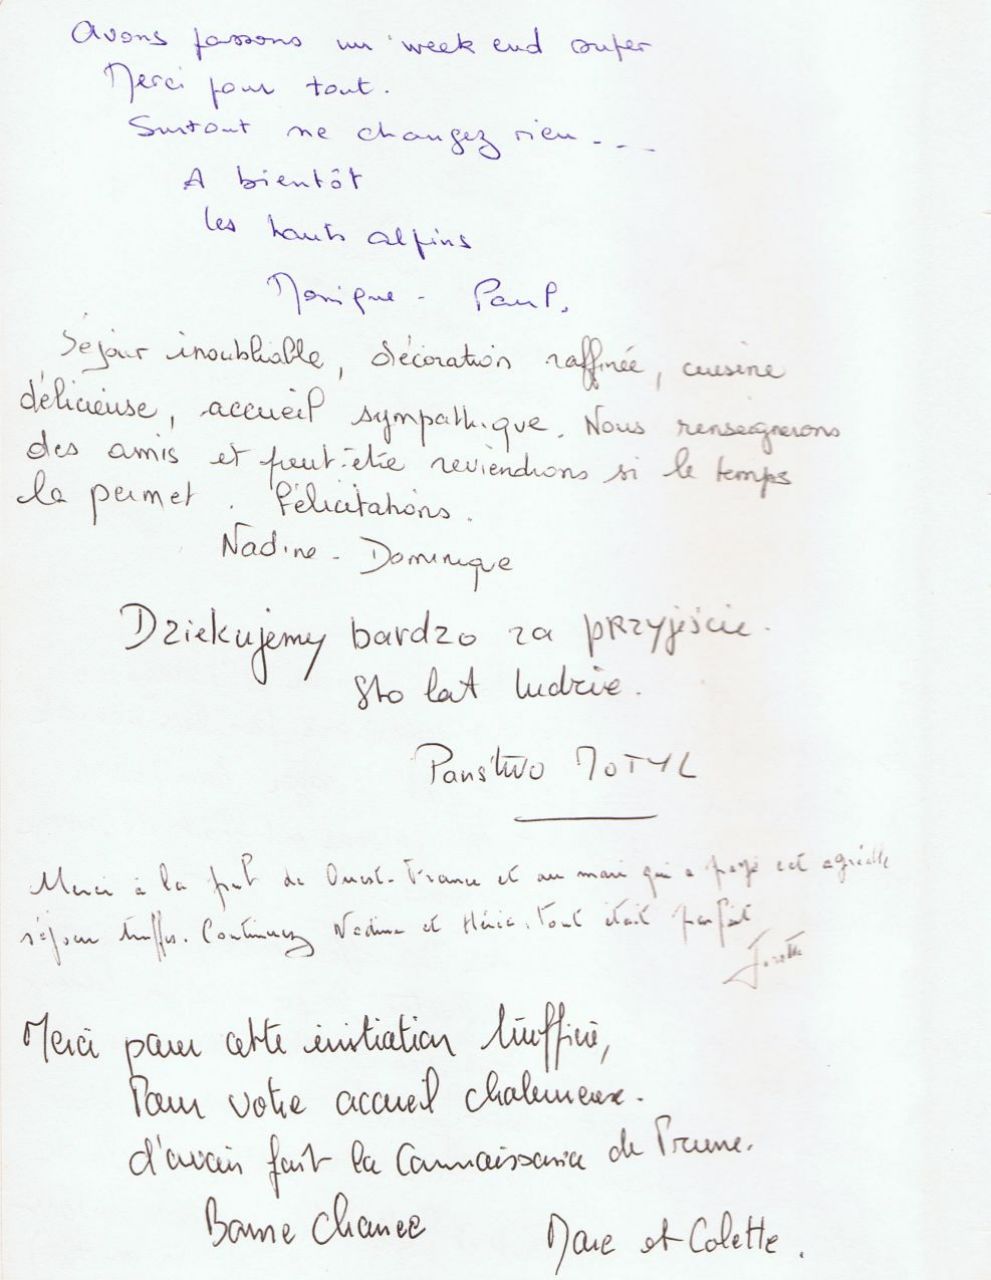 Avons passons un week end super
Merci pour tout.
Surtout ne changez rien....
A bientôt
les hauts alpins
Monique - Paul.
Séjour inoubliable, décoration raffinée, cuisine
délicieuse, accueil sympathique. Nous renseignerons
des amis et peut-être reviendrons si le temps
le permet. Félicitations.
Nadine - Dominique
Dziekujemy bardzo za przyjście.
Sto lat ludzie.
Państwo MOTYL
Merci à la pub de Ouest-France et au mari qui a payé cet agréable
séjour truffes. Continuez et tout était parfait
Merci pour cette initiation truffière,
Pour votre accueil chaleureux.
d'avoir fait la Connaissance de Prune.
Bonne Chance Marc et Colette.